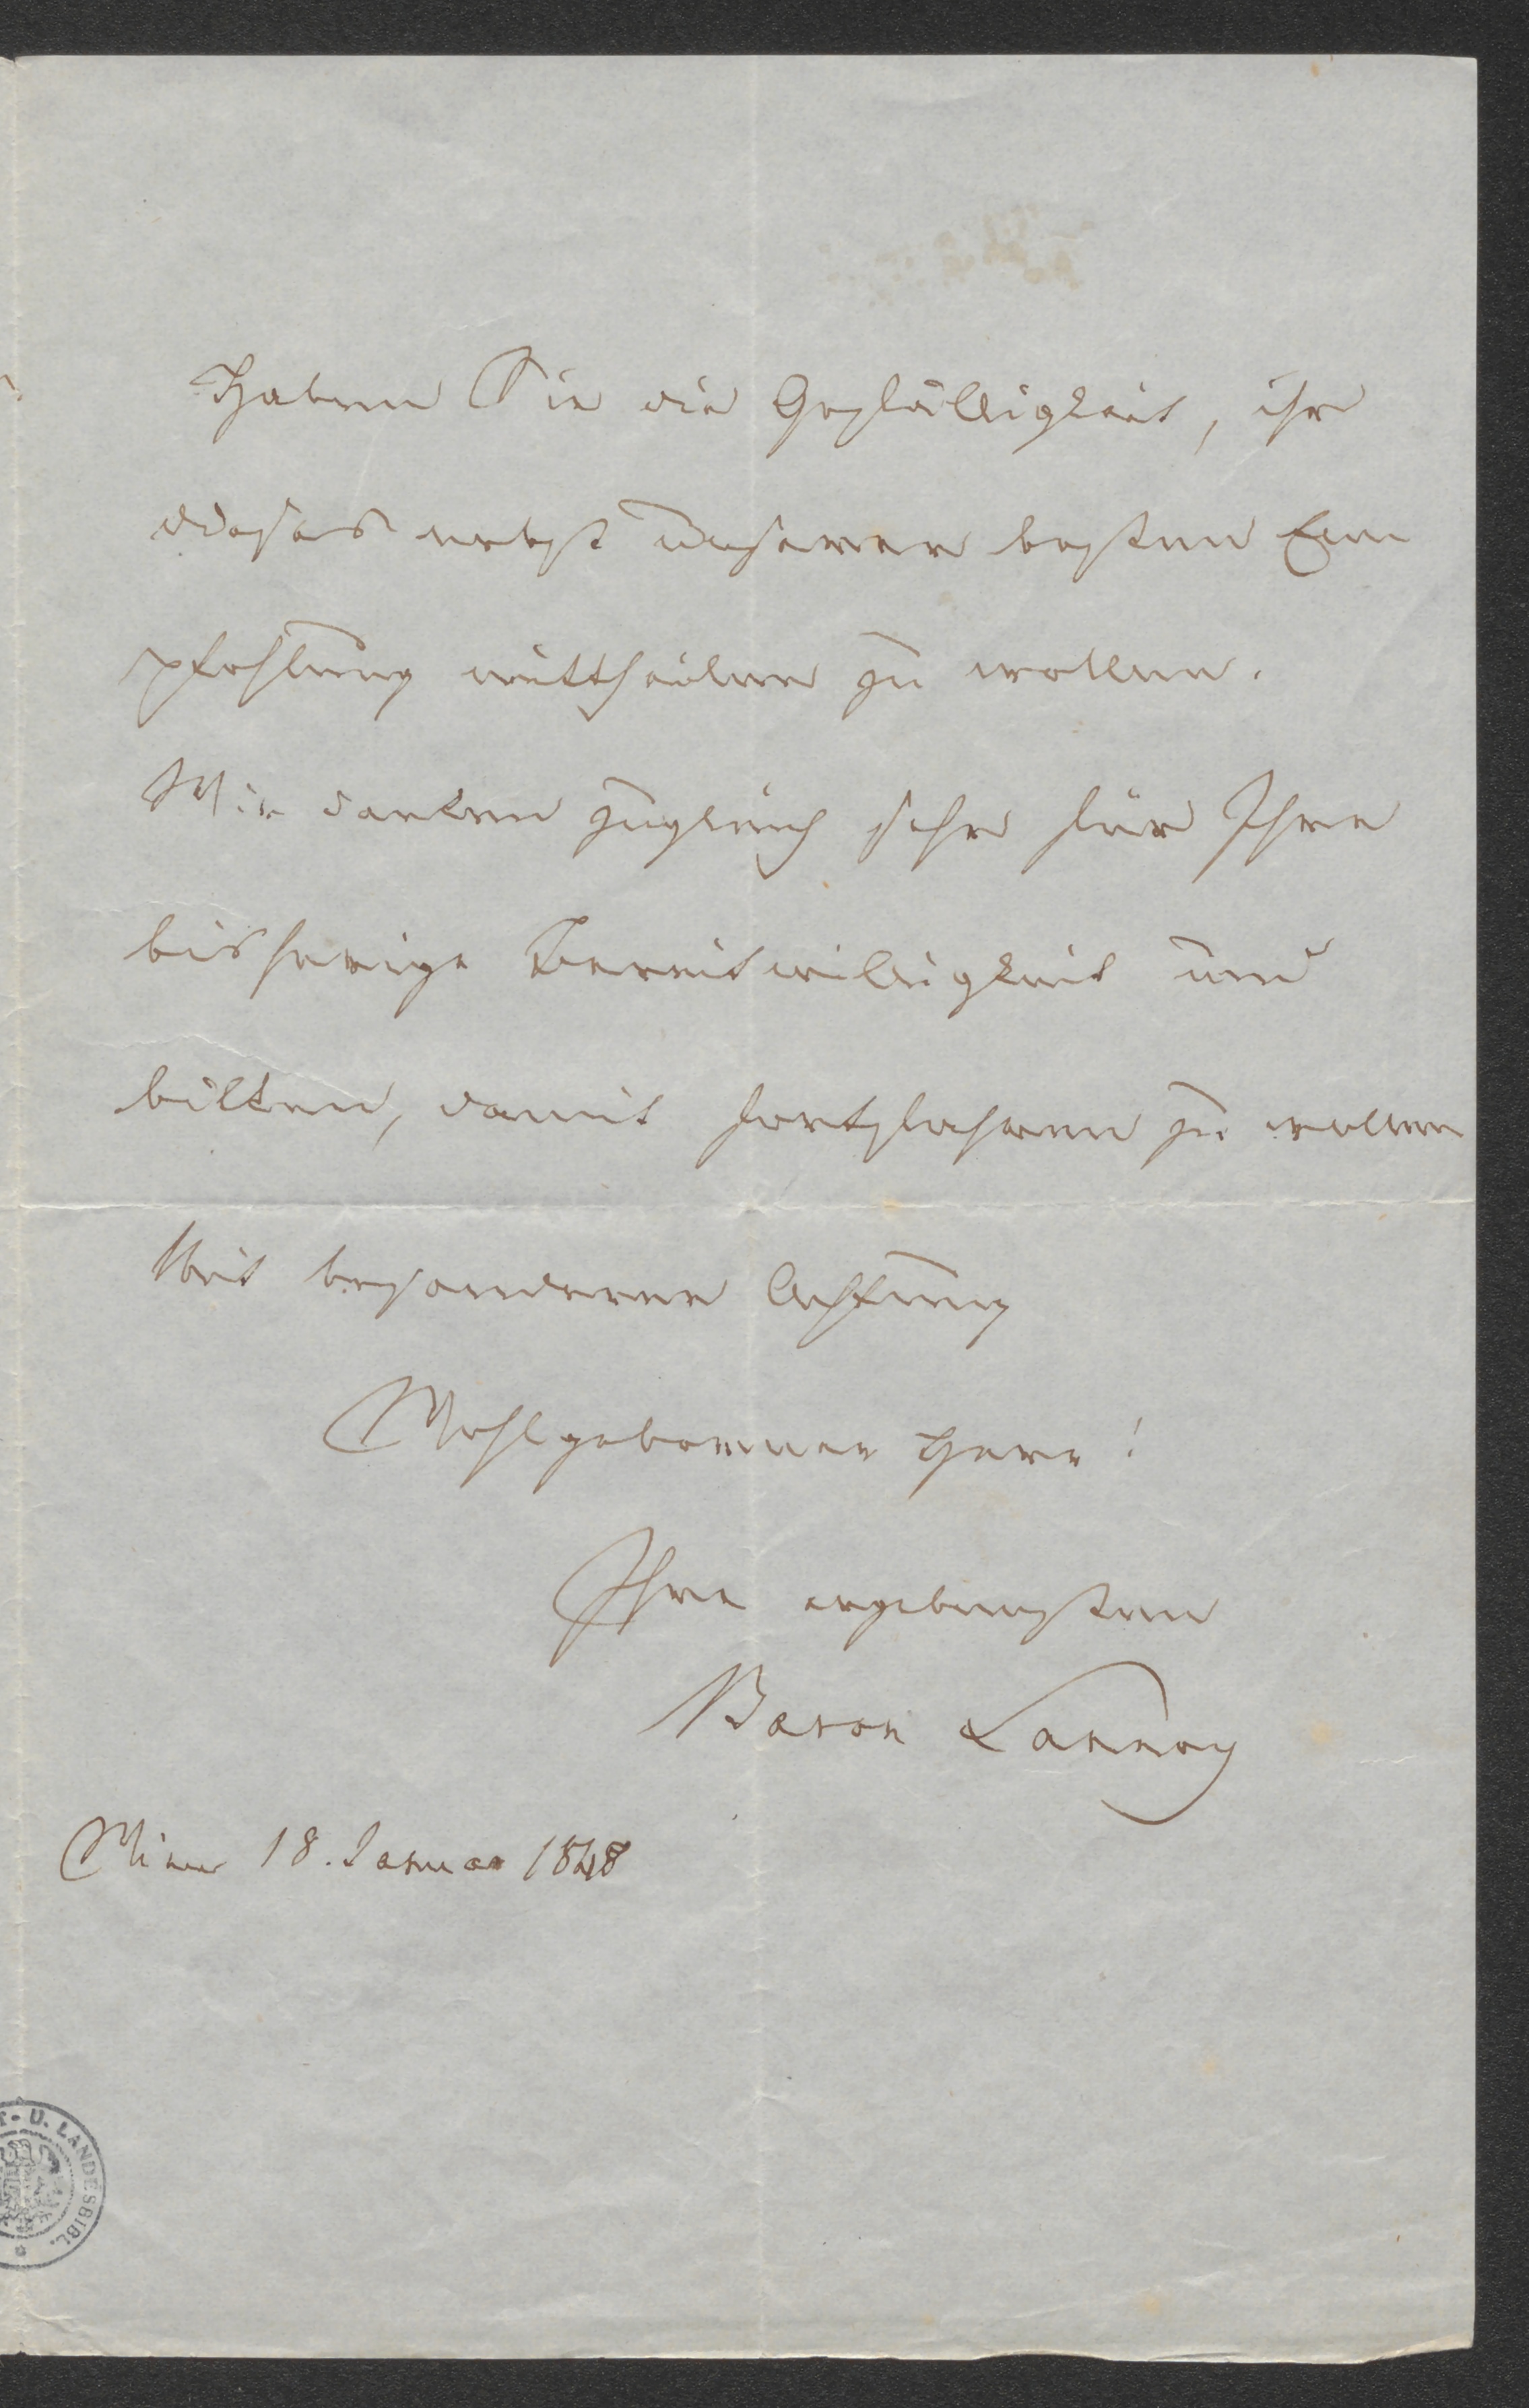 Haben Sie die Gefälligkeit, ihr
dieses nebst unserer besten Em
pfehlung mittheilen zu wollen.
Wir danken zugleich sehr für Ihre
bisherige Bereitwilligkeit und
bitten, damit fortfahren zu wollen
Mit besonderer Achtung
Wohlgeborner Herr!
Ihre ergebensten
Baron Lannoy
Wien 18. Januar 1848
T- U. LANDESBIBL.